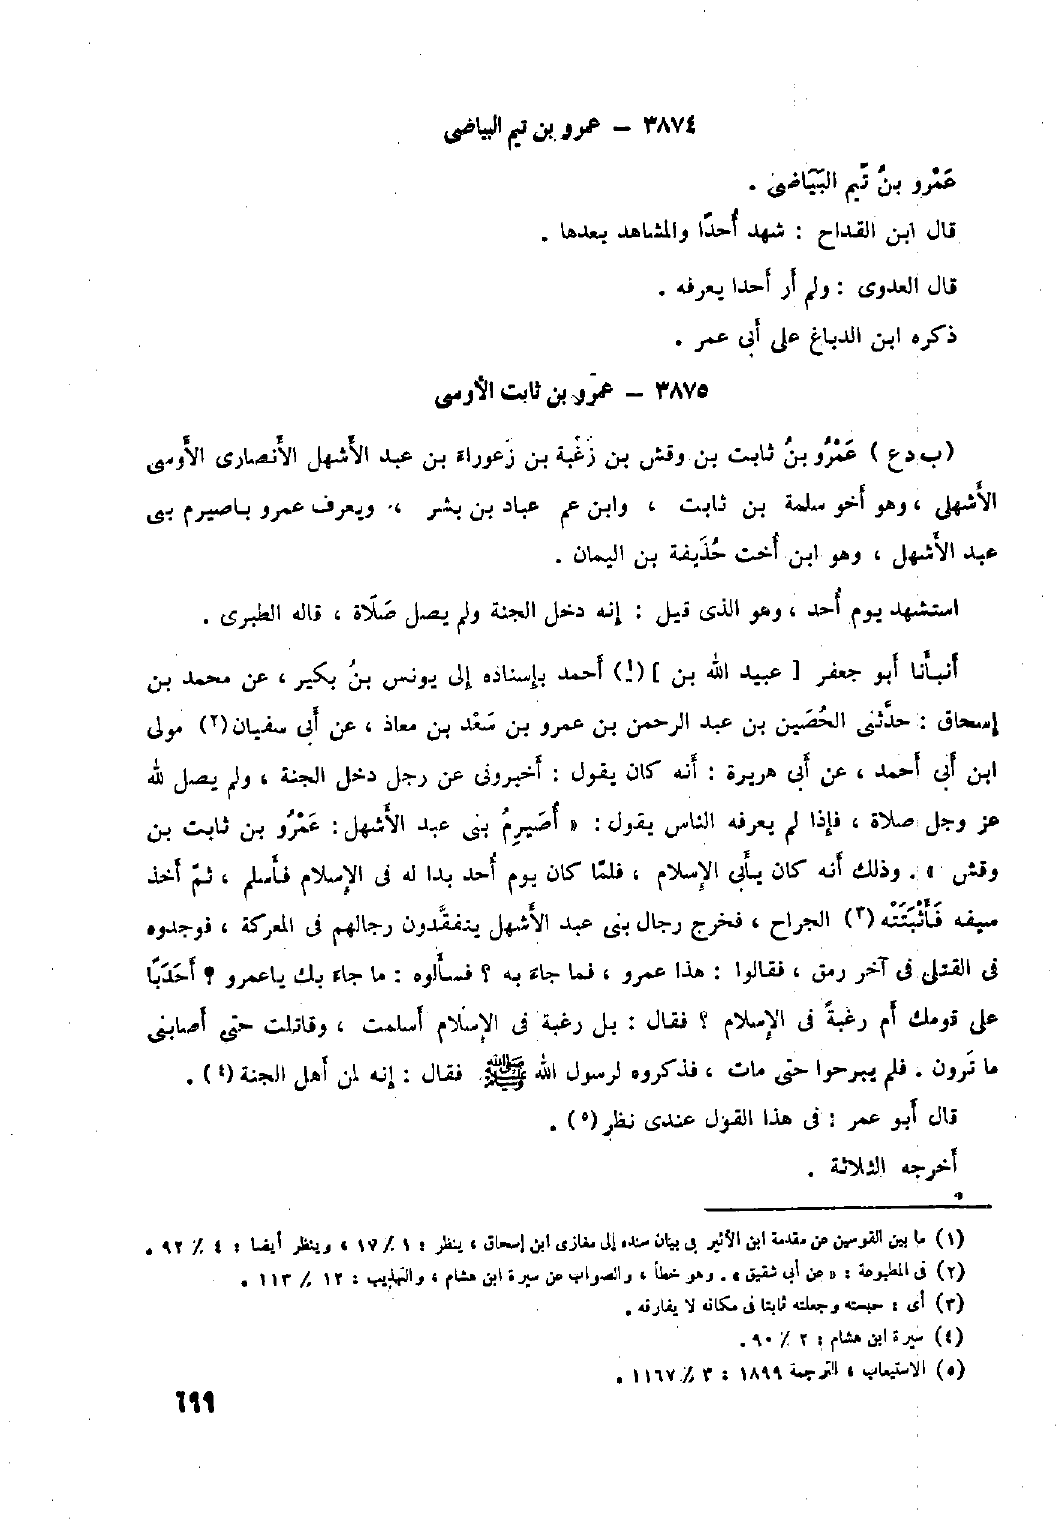 ٣٨٧٤ – عمرو بن تيم البياضى
عَمْرو بنُ تَيم البَيَاضى .
قال ابن القداح : شهد أُحدًا والمشاهد بعدها .
قال العدوى : ولم أر أحدا يعرفه .
ذكره ابن الدباغ على أبى عمر .
٣٨٧٥ – عمرو بن ثابت الأوسى
(ب د ع ) عَمْرُو بنُ ثابت بن وقش بن زَغْبة بن زَعوراءَ بن عبد الأَشهل الأَنصارى الأَوسى
الأَشهلى ، وهو أخو سلمة بن ثابت ، وابن عم عباد بن بشر ، ويعرف عمرو بأصيرم بنى
عبد الأَشهل ، وهو ابن أُخت حُذَيفة بن اليمان .
استشهد يوم أُحد ، وهو الذى قيل : إنه دخل الجنة ولم يصل صَلَاة ، قاله الطبرى .
أَنبأَنا أَبو جعفر [ عبيد الله بن ] (١) أَحمد بإِسناده إلى يونس بنُ بكير ، عن محمد بن
إسحاق : حدَّثنى الحُصَين بن عبد الرحمن بن عمرو بن سَعْد بن معاذ ، عن أَبى سفيان(٢) مولى
ابن أَبى أَحمد ، عن أَبى هريرة : أَنه كان يقول : أَخبرونى عن رجل دخل الجنة ، ولم يصل لله
عز وجل صلاة ، فإذا لم يعرفه الناس يقول : « أُصَيرِمُ بنى عبد الأَشهل : عَمْرُو بن ثابت بن
وقش » . وذلك أَنه كان يأَبى الإِسلام ، فلمّا كان يوم أُحد بدا له فى الإِسلام فأَسلم ، ثمّ أَخذ
سيفه فَأَثْبَتَتْه (٣) الجراح ، فخرج رجال بنى عبد الأَشهل يتفقَّدون رجالهم فى المعركة ، فوجدوه
فى القتلى فى آخر رمق ، فقالوا : هذا عمرو ، فما جاءَ به ؟ فسأَلوه : ما جاءَ بك ياعمرو ؟ أَحَدَبًا
على قومك أم رغبةً فى الإِسلام ؟ فقال : بل رغبة فى الإِسلام أَسلمت ، وقاتلت حتى أَصابنى
ما تَرون . فلم يبرحوا حتى مات ، فذكروه لرسول الله ﷺ فقال : إنه لمن أَهل الجنة (٤) .
قال أَبو عمر : فى هذا القول عندى نظر (٥) .
أَخرجه الثلاثة .
(١) ما بين القوسين عن مقدمة ابن الأثير فى بيان سنده إلى مغازى ابن إسحاق ، ينظر : ١ / ١٧ ، وينظر أيضا : ٤ / ٩٢ .
(٢) فى المطبوعة : « عن أبى شقيق » . وهو خطأ ، والصواب عن سيرة ابن هشام ، والتهذيب : ١٢ / ١١٣ .
(٣) أى : حبسته وجعلته ثابتا فى مكانه لا يفارقه .
(٤) سيرة ابن هشام : ٢ / ٩٠ .
(٥) الاستيعاب ، الترجمة ١٨٩٩ : ٣ / ١١٦٧ .
٦٩٩